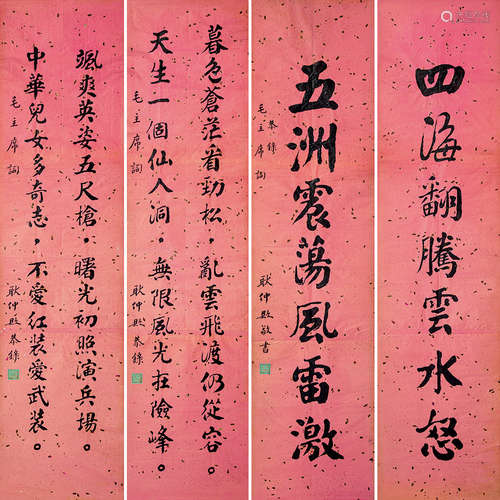 四海翻騰雲水怒
五洲震蕩風雷激
恭錄
毛主席詞
耿仲敭敬書
暮色蒼茫看勁松，亂雲飛渡仍從容。
天生一個仙人洞，無限風光在險峰。
毛主席詞
耿仲敭恭錄
颯爽英姿五尺槍，曙光初照演兵場。
中華兒女多奇志，不愛紅裝愛武裝。
毛主席詞
耿仲敭恭錄